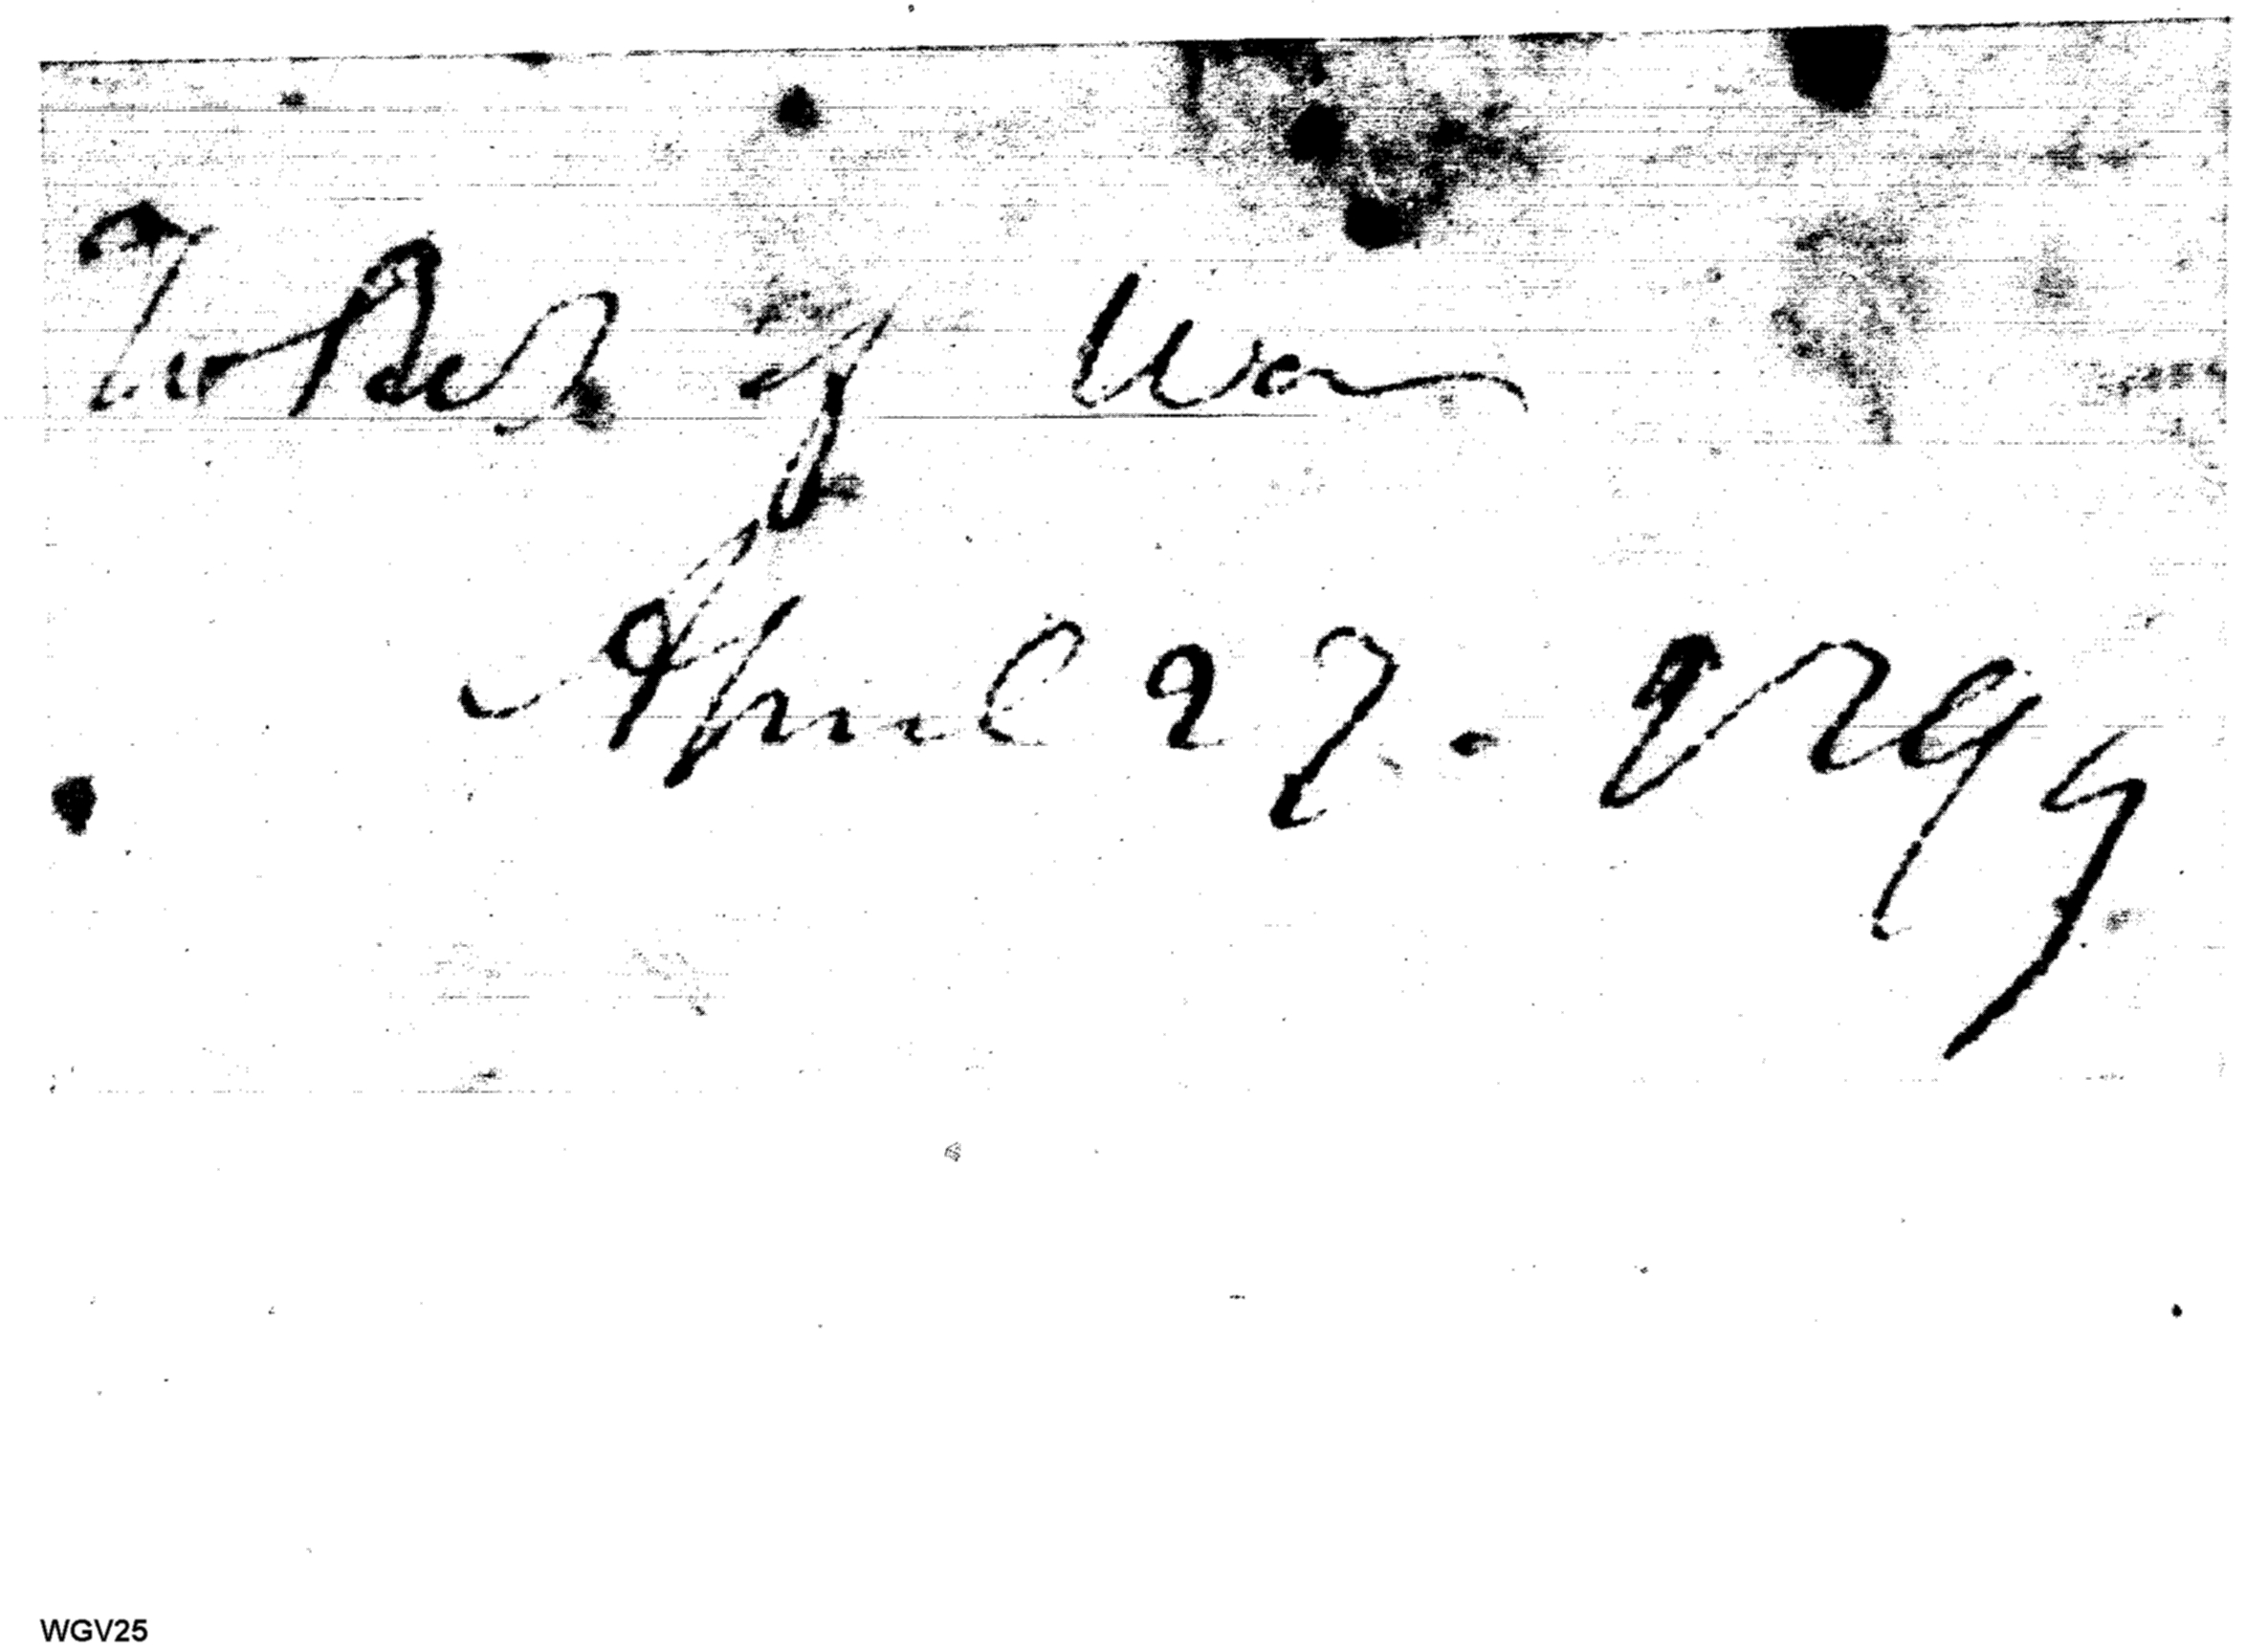 To Sec.y of War
April 27. 1797
WGV25